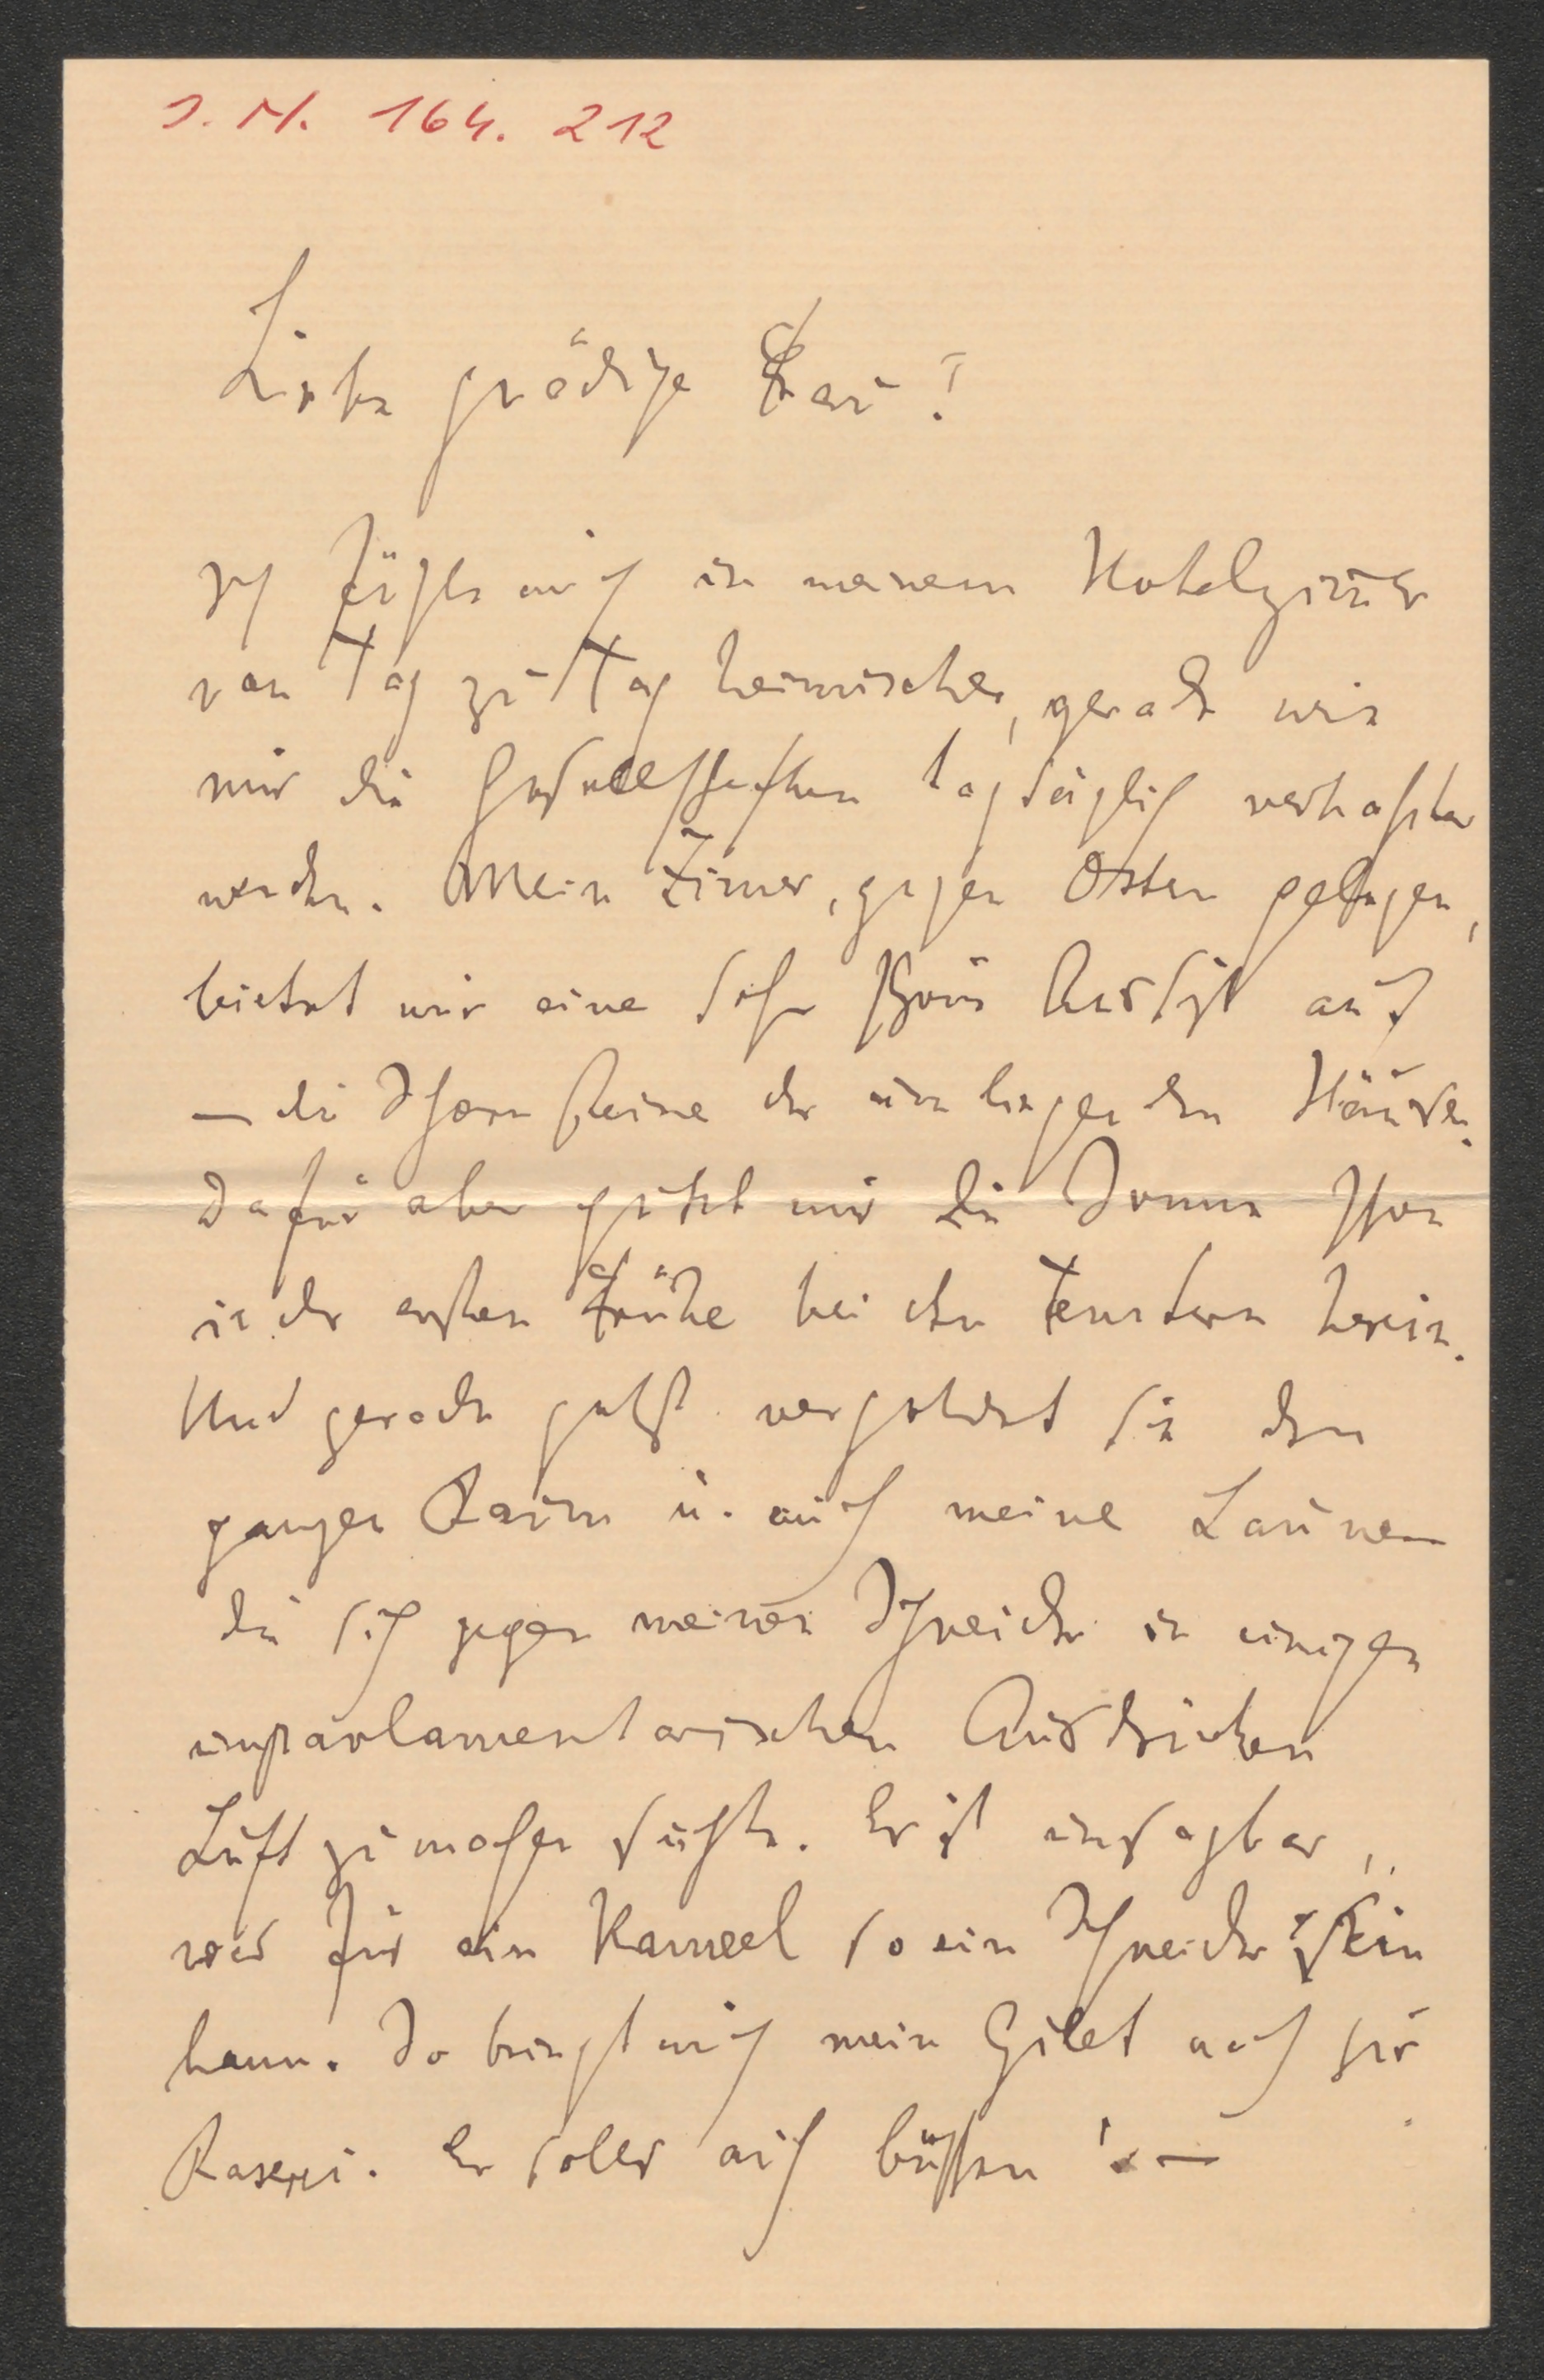 I. N. 164. 212
Liebe gnädige Frau!
Ich fühle mich in meinem Hotelzimer
von Tag zu Tag heimischer, gerade wie
mir die Gesellschaften tagtäglich verhaßter
werden. Mein Zimer, gegen Osten gelegen,
bietet mir eine sehr schöne Aussicht auf
– die Schornsteine der umliegenden Häuser.
Dafür aber guckt mir die Sonne schon
in der ersten Frühe bei den Fenstern herein.
Und gerade jetzt vergoldet sie den
ganzen Raum u. auch meine Laune
die sich gegen meinen Schneider in einigen
unparlamentarischen Ausdrücken
Luft zu machen suchte. Es ist unsagbar,
was für ein Kameel so ein Schneider sein
kann. So bringt mich mein Gilet noch zur
Raserei. Er soll es auch büßen! –